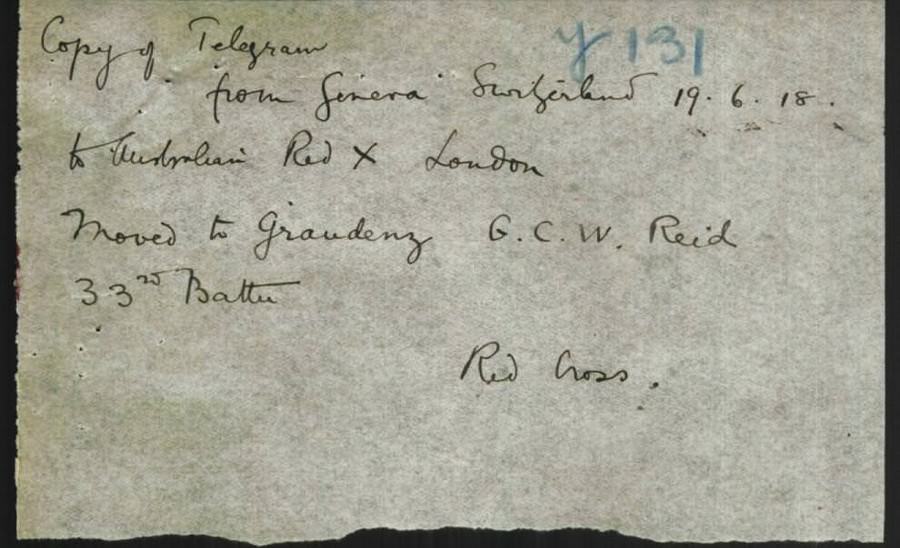 Copy of Telegram
y 131
from Geneva Switzerland 19.6.18.
to Australian Red X London
Moved to Graudenz G.C.W. Reid
33rd Battn
Red Cross.